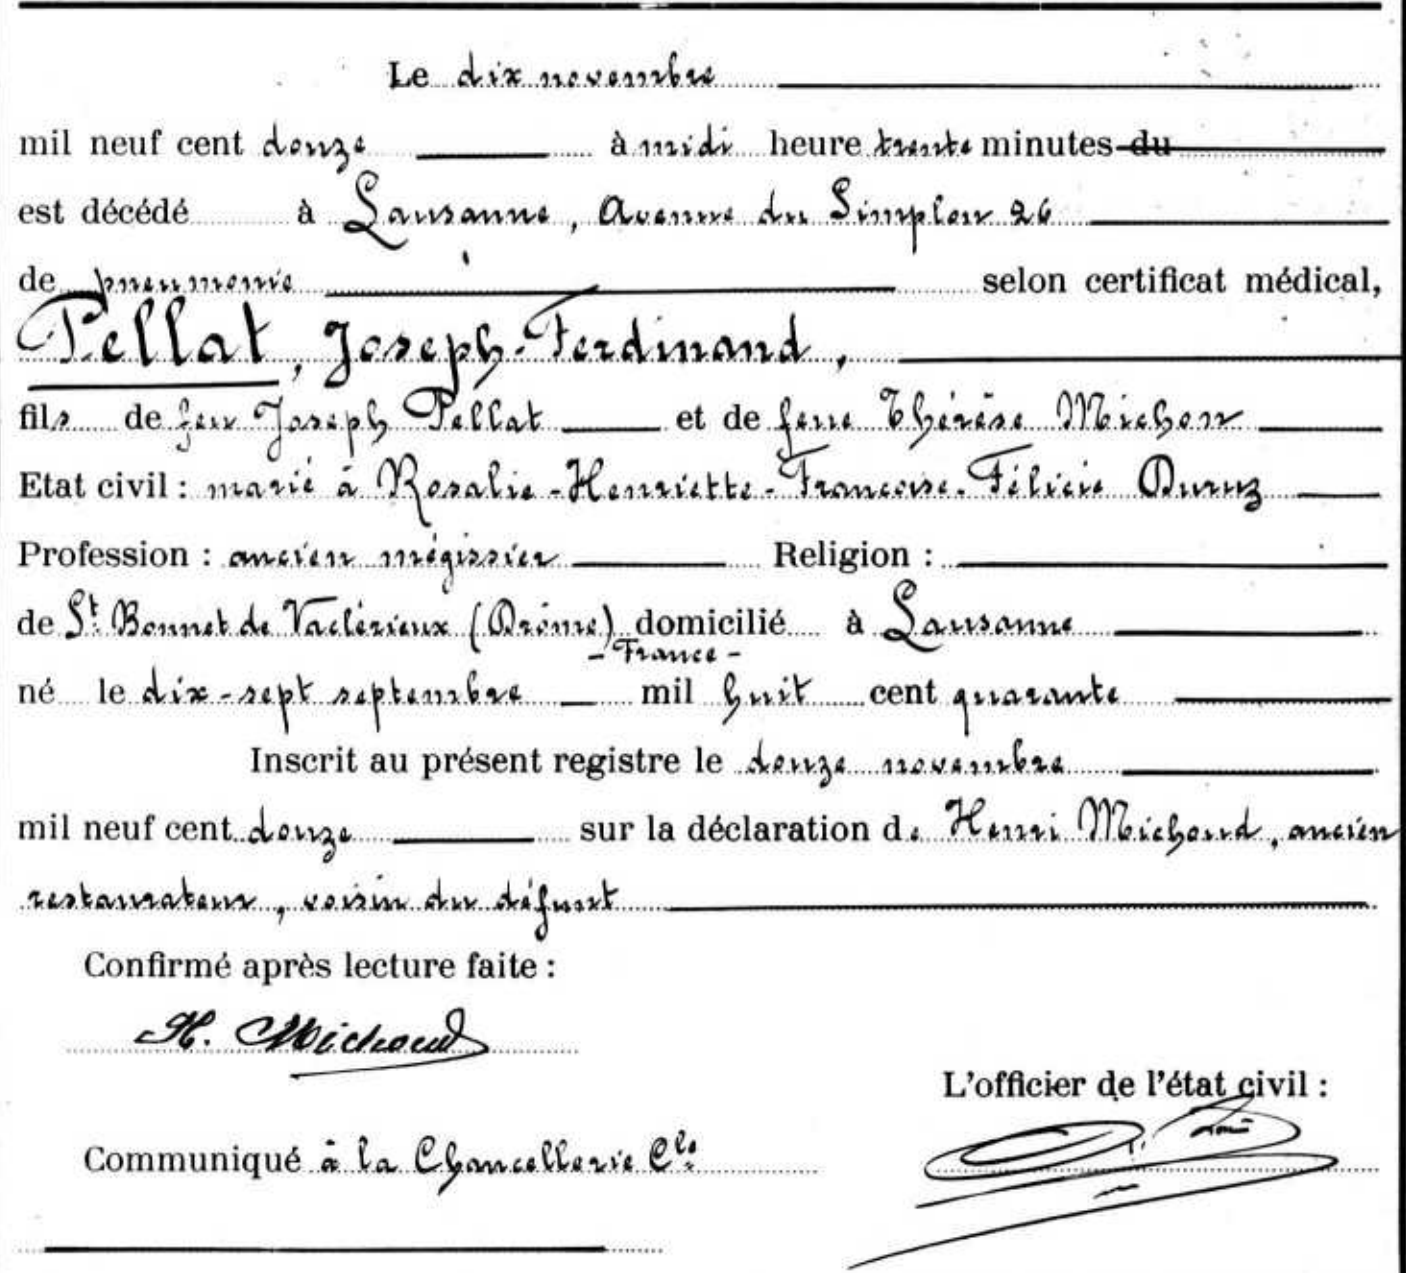 Le dix novembre
mil neuf cent douze à midi heure trente minutes du
est décédé à Lausanne, Avenue du Simplon 26
de pneumonie selon certificat médical,
Pellat, Joseph-Ferdinand,
fils de feu Joseph Pellat et de feue Thérèse Michon
Etat civil : marié à Rosalie-Henriette-Françoise-Félicie Duruz
Profession : ancien mégissier Religion :
de St. Bonnet de Vaclérieux (Drôme) domicilié à Lausanne
- France -
né le dix-sept septembre mil huit cent quarante
Inscrit au présent registre le douze novembre
mil neuf cent douze sur la déclaration de Henri Michoud, ancien
restaurateur, voisin du défunt
Confirmé après lecture faite :
H. Michoud
L'officier de l'état civil :
Communiqué à la Chancellerie Cle